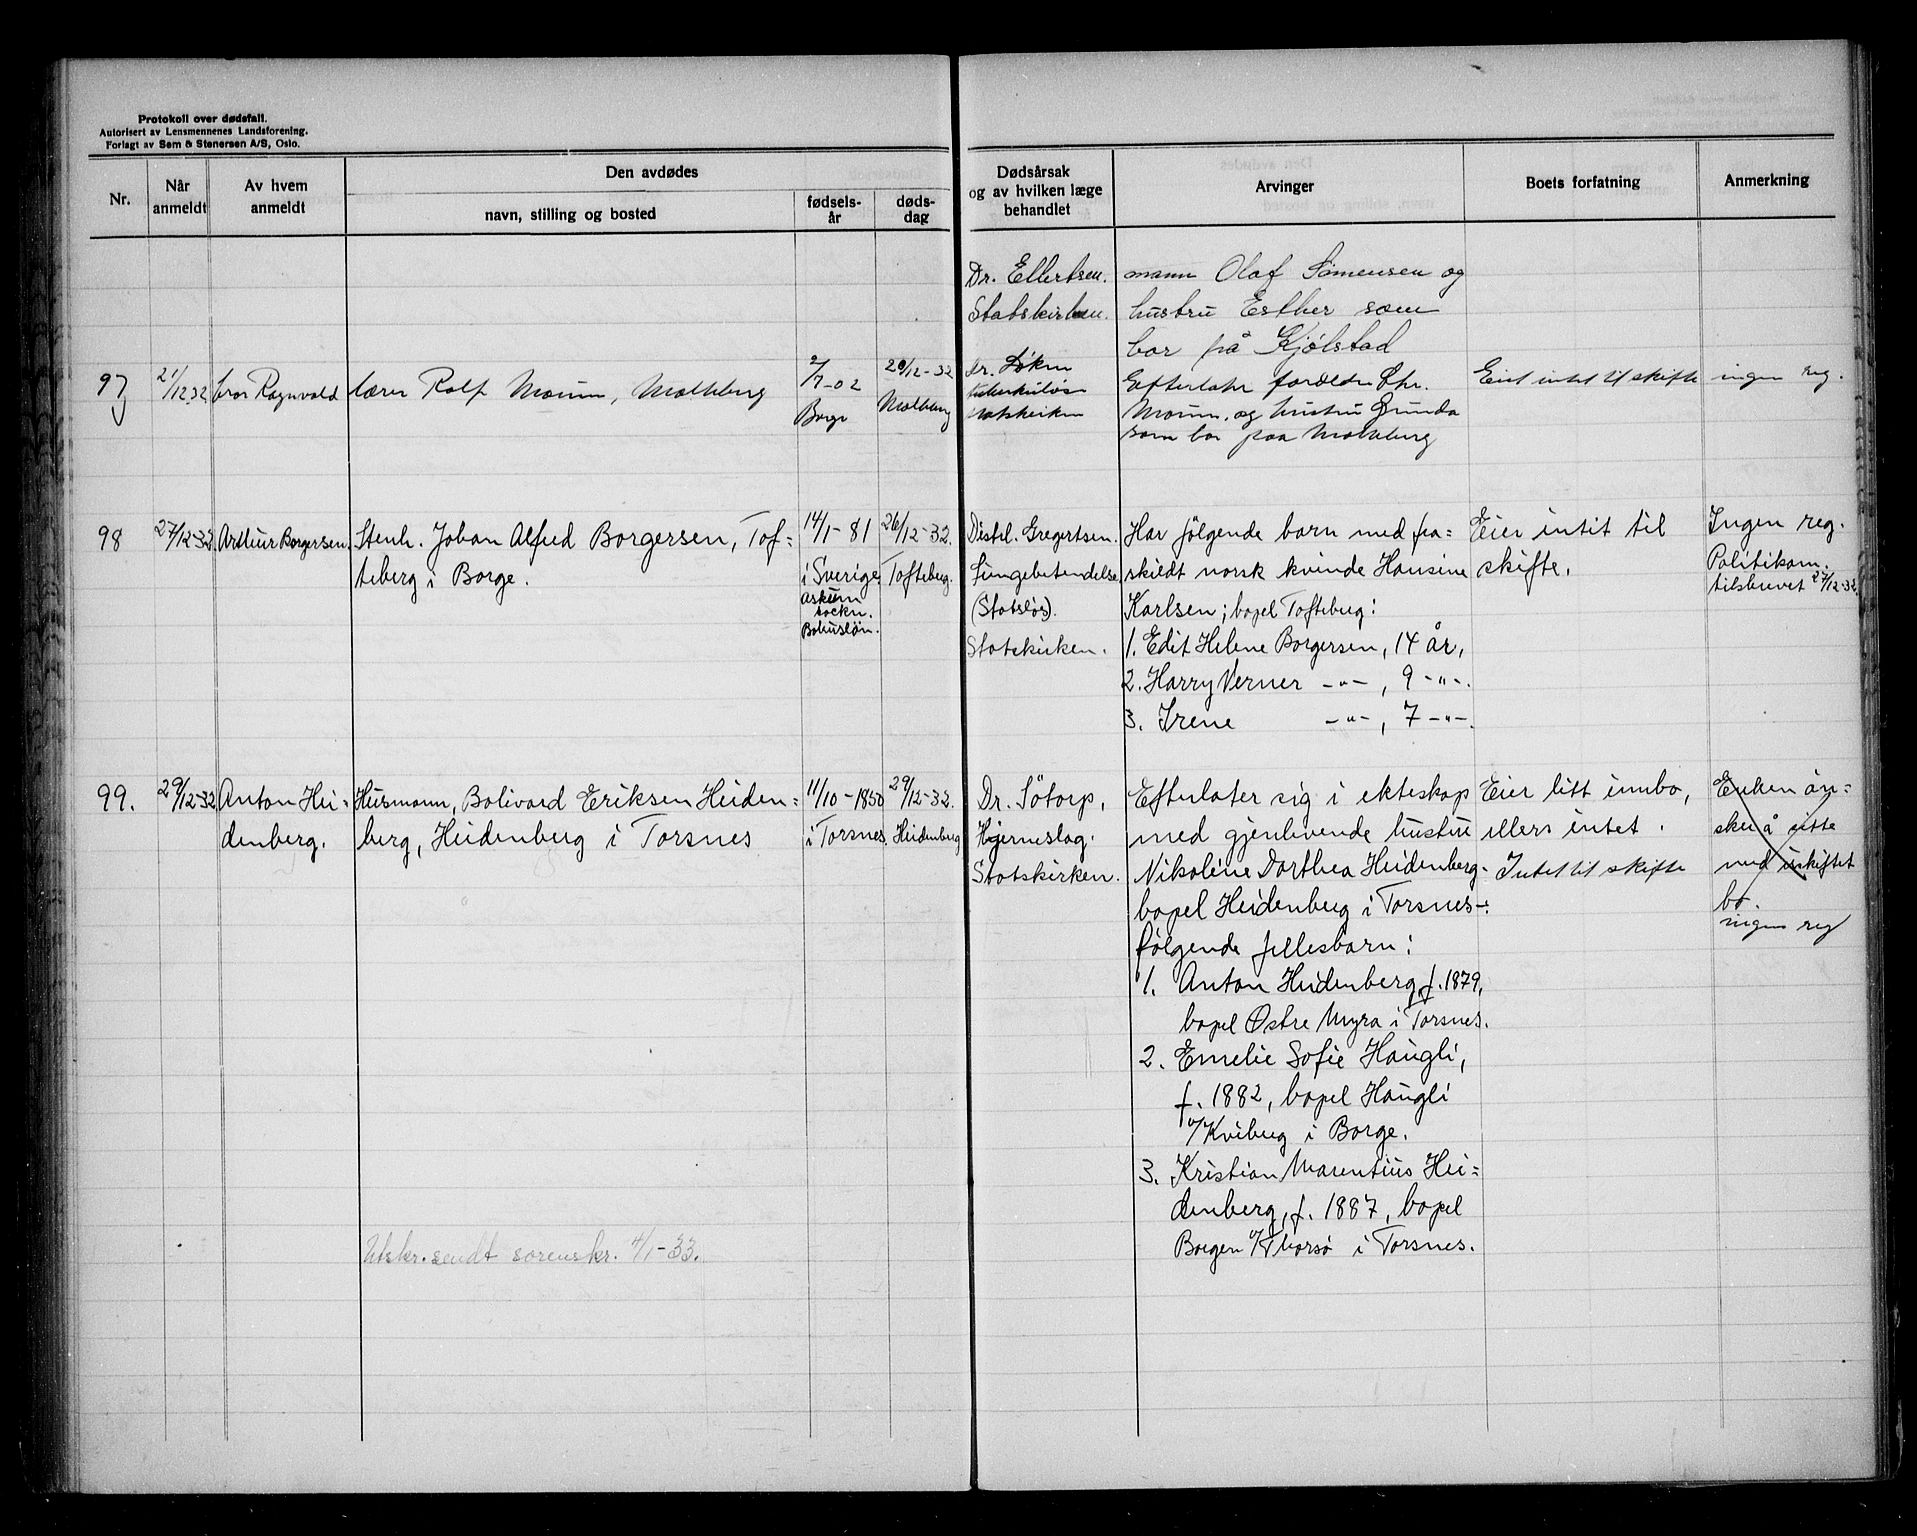 Protokoll over dødsfall.
Autorisert av Lensmennenes Landsforening.
Forlagt av Sem & Stenersen A/S, Oslo.
Nr.
Når anmeldt
Av hvem anmeldt
Den avdødes
navn, stilling og bosted
fødsels-år
døds-dag
Dødsårsak og av hvilken læge behandlet
Arvinger
Boets forfatning
Anmerkning
Dr. Ellertsen.
Statskirken.
mann Olaf Simensen og
hustru Esther som
bor på Kjølstad
97
21/12.32
bror Ragnvald
lærer Rolf Moum, Molteberg
2/7-02
Borge
20/12-32
Molteberg
Dr. Løken
tuberkuløse
statskirken
Efterlater foreldre Chr.
Moum, og hustru Gunda
som bor paa Molteberg
Eier intet til skifte
ingen reg.
98
27/12-32
Arthur Borgersen.
Stenh. Johan Alfred Borgersen, Tof=
teberg i Borge.
14/1-81
i Sverige
Askum
sockn.
Bohuslän.
26/12-32.
Tofteberg.
Distrl. Gregertsen.
Lungebetendelse
(Statsløs).
Statskirken.
Har følgende barn med fra=
skildt norsk kvinde Hansine
Karlsen; bopel Tofteberg:
1. Edit Helene Borgersen, 14 år,
2. Harry Verner -"- , 9 -"-.
3. Irene -"- , 7 -"-.
Eier intet til
skifte.
Ingen reg.
Politikam.
tilskrevet 27/12-32.
99.
29/12-32
Anton Hei=
denberg.
Husmann, Bolivard Eriksen Heiden=
berg, Heidenberg i Torsnes
11/10-1850
i Torsnes.
29/12-32.
Heidenberg
Dr. Sötorp,
Hjerneslag.
Statskirken.
Efterlater sig i ekteskap
med gjenlevende hustru
Nikoline Dorthea Heidenberg.
bopel Heidenberg i Torsnes-:
følgende fellesbarn:
1. Anton Heidenberg, f. 1879,
bopel Østre Myra i Torsnes.
2. Emelie Sofie Haugli,
f. 1882, bopel Haugli
v/Kviberg i Borge.
3. Kristian Marentius Hei=
denberg, f. 1887, bopel
Borgen v/Thorsø i Torsnes.
Eier litt innbo,
ellers intet.
Intet til skifte
Enken øn=
sker å sitte
med uskiftet
bo.
ingen reg
Utskr. sendt sorenskr. 4/1-33.